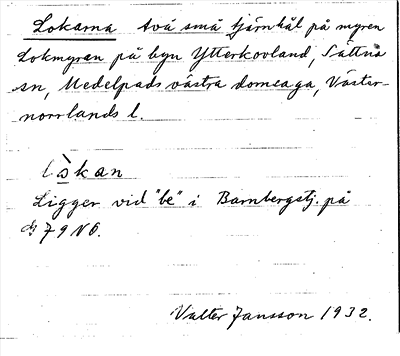 Lokarna två små tjärnhål på myren
Lokmyran på byn Ytterkovland, Sättna
sn, Medelpads västra domsaga, Väster-
norrlands l.
lòkan
Ligger vid "be" i Barnbergstj. på
79 NO.
Valter Jansson 1932.